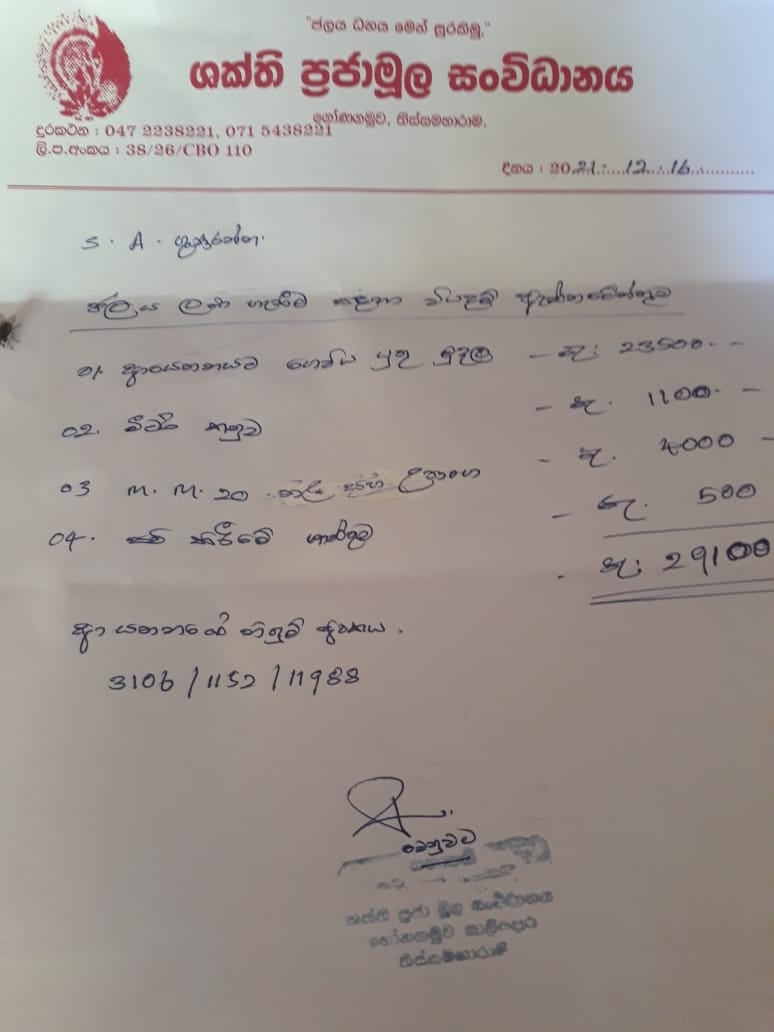 "ජලය ධනය මෙන් සුරකිමු."
ශක්ති ප්‍රජාමූල සංවිධානය
ගෝණගමුව, තිස්සමහාරාම.
දුරකථන : 047 2238221, 071 5438221
ලි.ප.අංකය : 38/26/CBO 110
දිනය : 2021.12.16
S. A. ගුණරත්න.
ජලය ලබා ගැනීම සඳහා වියදම් ඇස්තමේන්තුව
01. ආයතනයට ගෙවිය යුතු මුදල - රු: 23500.-
02. මීටර් - රු. 1100.-
03 M. M. 20 සහ උපාංග - රු. 4000 -
04. කිරීමේ ගාස්තුව - රු. 500
රු: 29100
ආයතනයේ ගිණුම් අංකය.
3106/1152/11988
වෙනුවට
ශක්ති ප්‍රජා මූල සංවිධානය
ගෝනගමුව
තිස්සමහාරාම